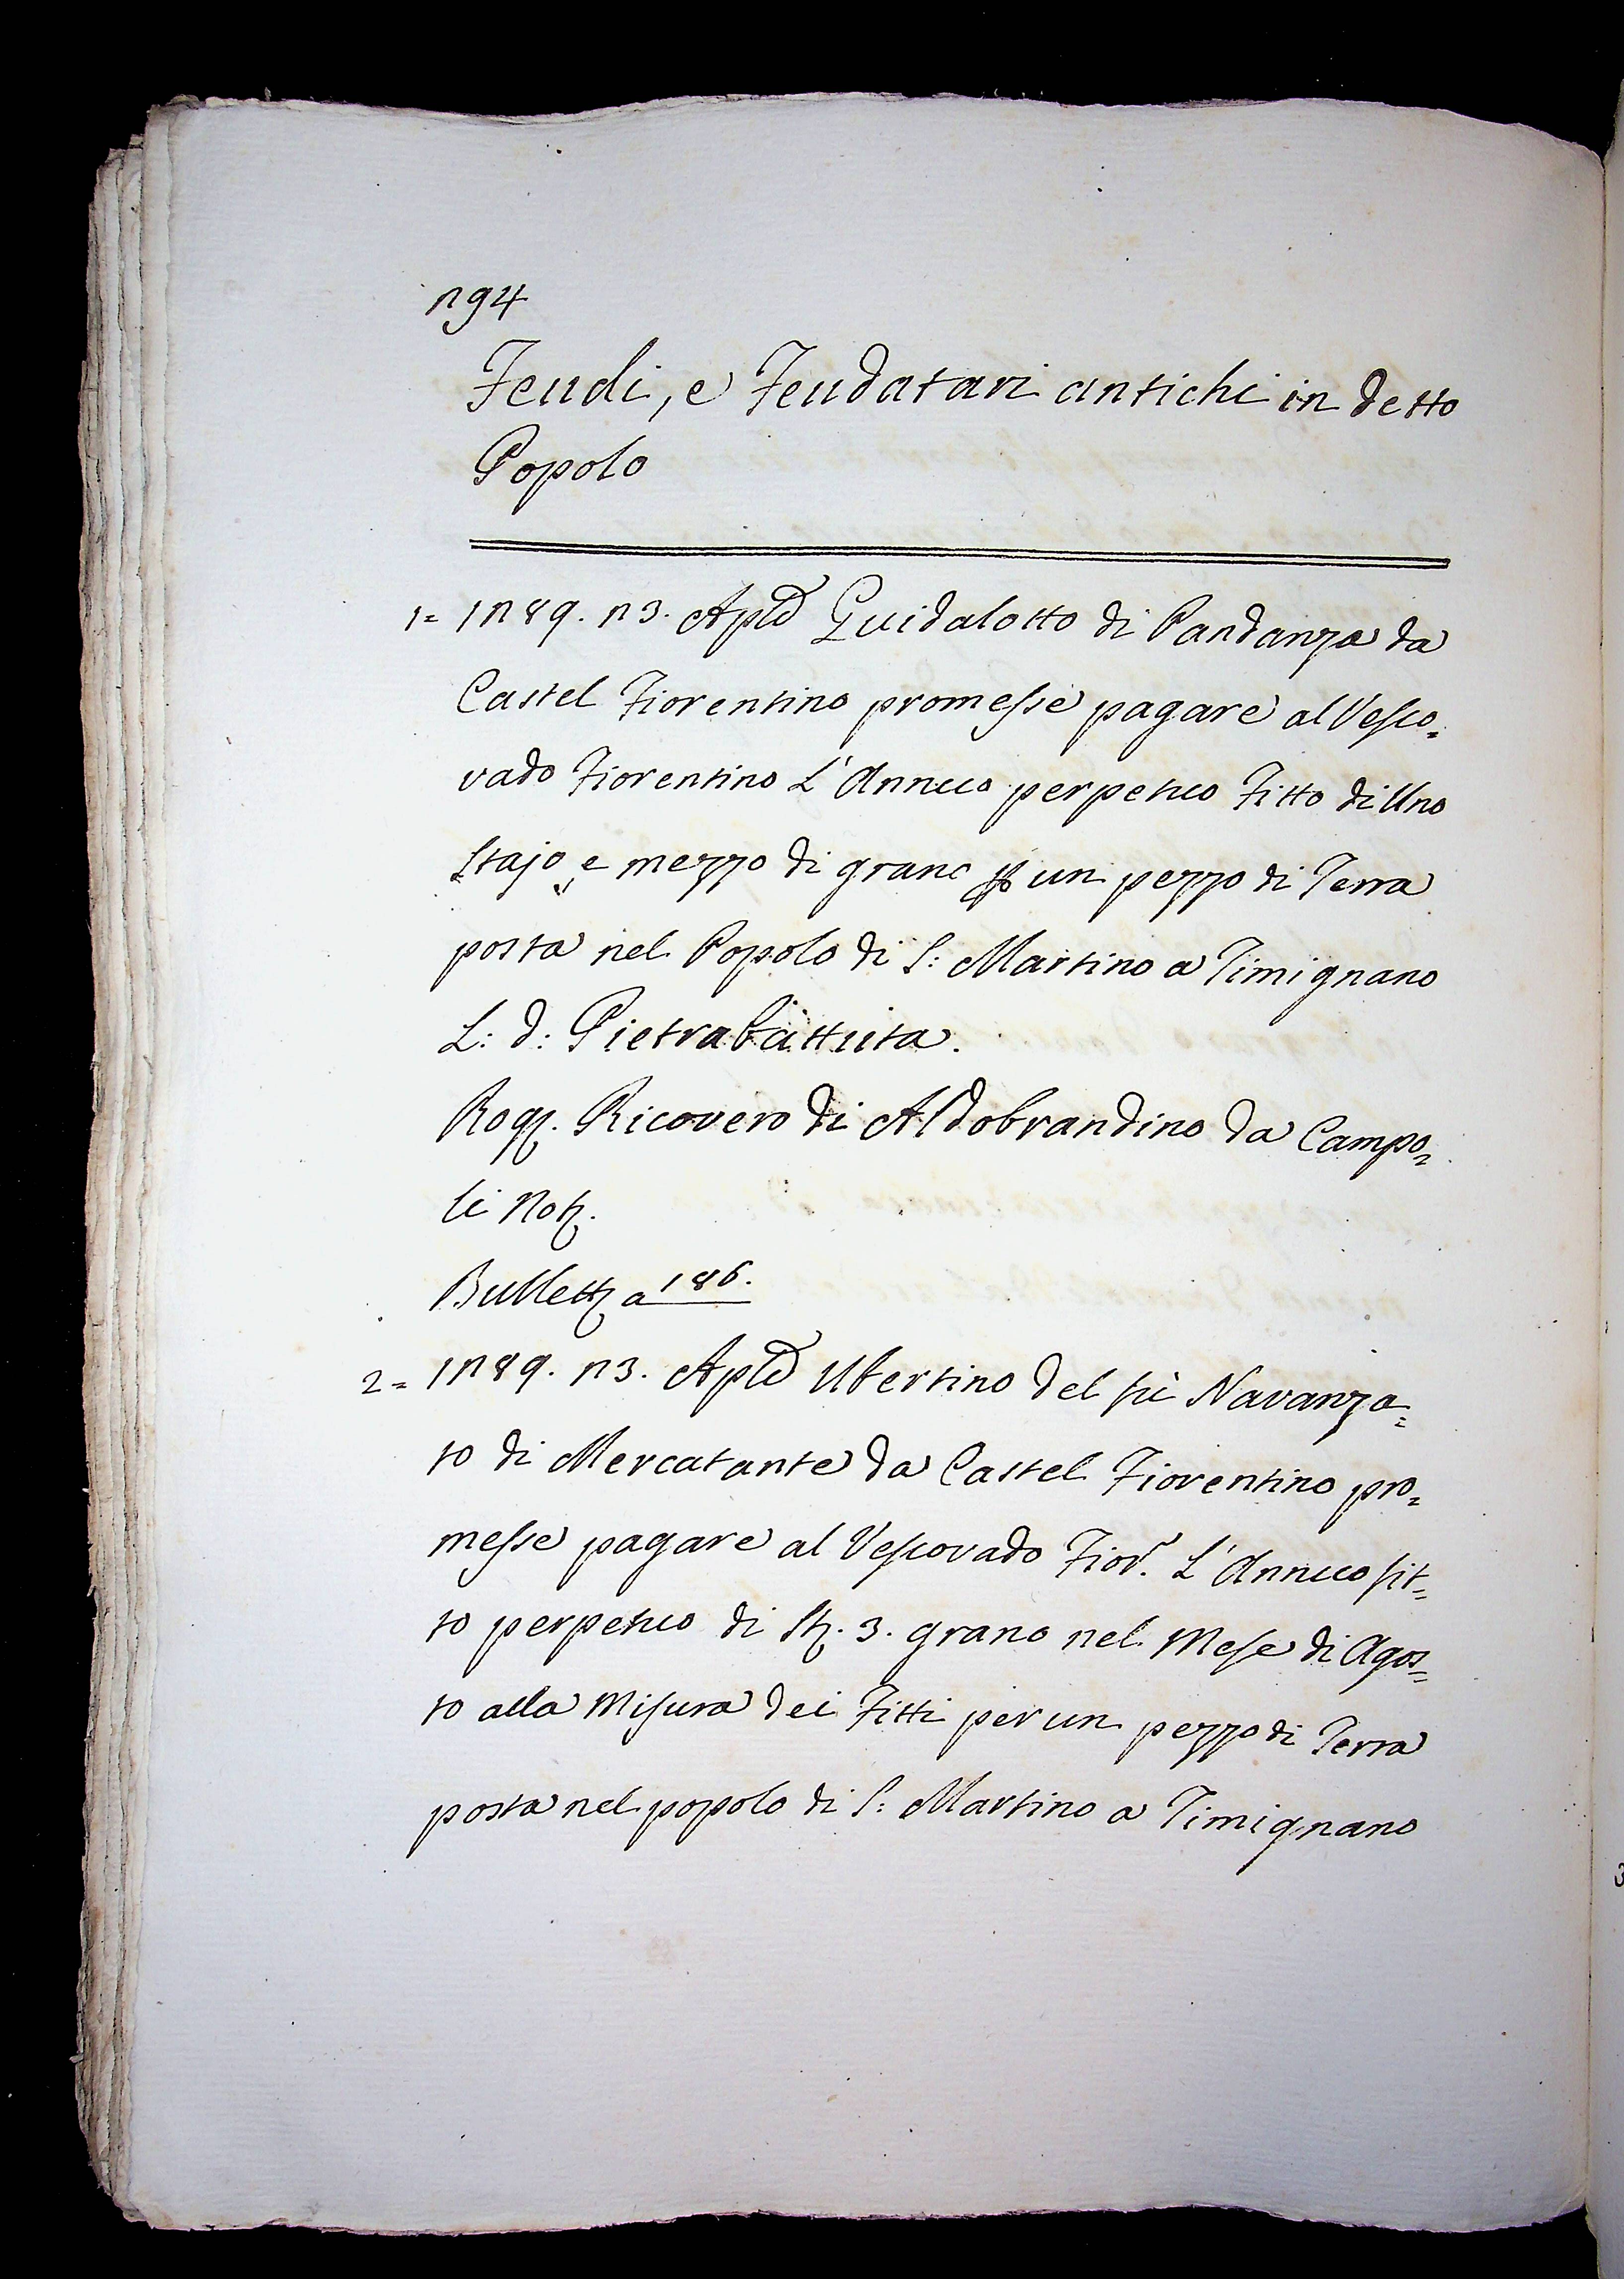 294
Feudi, e Feudatari antichi in detto
Popolo
1= 1289. 23. Aple Guidalotto di Pandanza da
Castel Fiorentino promesse pagare al Vesco=
vado Fiorentino L'Annuo perpetuo Fitto di Uno
Stajo e mezzo di grano p un pezzo di Terra
posta nel Popolo di S: Martino a Timignano
L: d: Pietrabattuta.
Rog. Ricovero di Aldobrandino da Campo=
li Not.
Bullett a 186.
2= 1289. 23. Aple Ubertino del fù Navanza=
to di Mercatante da Castel Fiorentino pro=
messe pagare al Vescovado Fior. L'Annuo fit=
to perpetuo di St. 3. grano nel Mese di Agos=
to alla Misura dei Fitti per un pezzo di Terra
posta nel popolo di S: Martino a Timignano